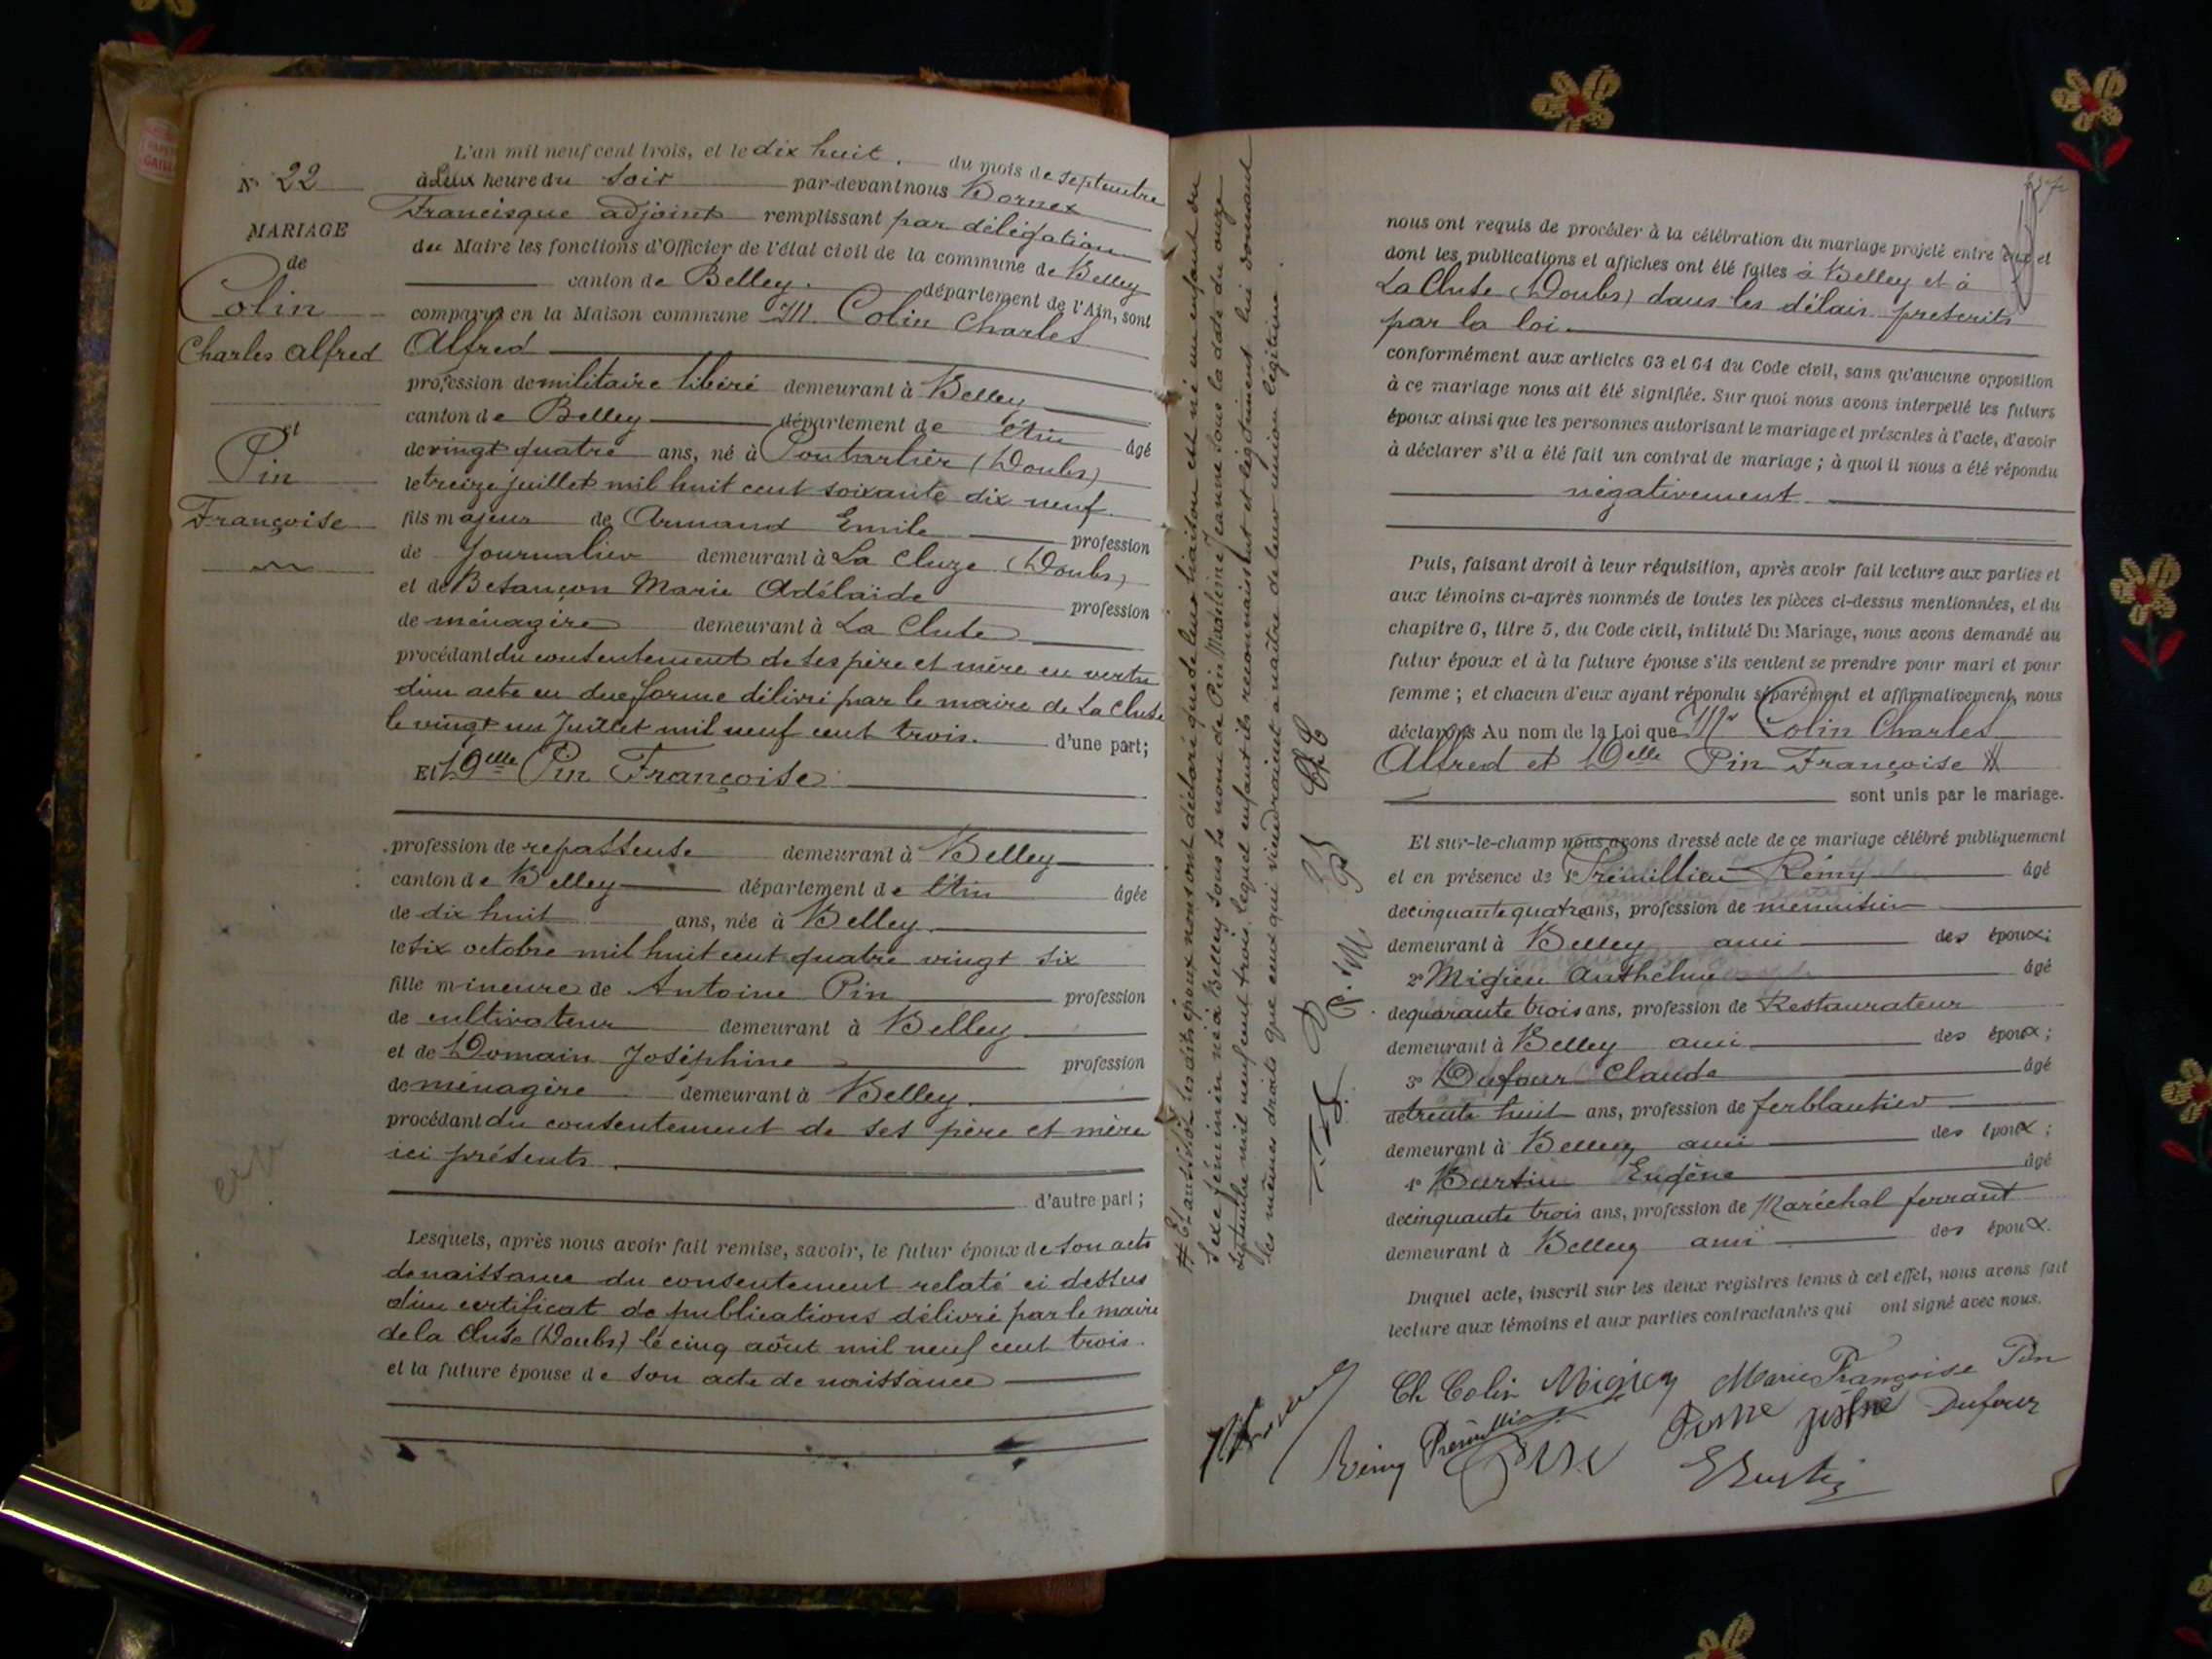 N° 22
MARIAGE
de
Colin
Charles Alfred
et
Pin
Françoise
L'an mil neuf cent trois, et le dix huit du mois de septembre
à deux heure du soir par-devant nous Bornex
Francisque adjoint remplissant par délégation
du Maire les fonctions d'Officier de l'état civil de la commune de Belley
canton de Belley département de l'Ain, sont
comparus en la Maison commune M. Colin Charles
Alfred
profession de militaire libéré demeurant à Belley
canton de Belley département de l'Ain âgé
de vingt quatre ans, né à Pontarlier (Doubs)
le treize juillet mil huit cent soixante dix neuf
fils majeur de Armand Emile profession
de journalier demeurant à La Cluze (Doubs)
et de Besançon Marie Adélaïde profession
de ménagère demeurant à La Cluse
procédant du consentement de ses père et mère en vertu
d'un acte en due forme délivré par le maire de La Cluse
le vingt un Juillet mil neuf cent trois. d'une part;
Et Delle Pin Françoise
profession de repasseuse demeurant à Belley
canton de Belley département de l'Ain âgée
de dix huit ans, née à Belley
le six octobre mil huit cent quatre vingt six
fille mineure de Antoine Pin profession
de cultivateur demeurant à Belley
et de Domain Joséphine profession
de ménagère demeurant à Belley
procédant du consentement de ses père et mère
ici présents
d'autre part;
Lesquels, après nous avoir fait remise, savoir, le futur époux de son acte
de naissance du consentement relaté ci dessus
d'un certificat de publications délivré par le maire
de la Cluse (Doubs) le cinq août mil neuf cent trois
et la future épouse de son acte de naissance
# Et aussitôt les dits époux nous ont déclaré que de leur liaison est né un enfant du
sexe féminin né à Belley sous le nom de Pin Madeleine Jeanne sous la date du onze
septembre mil neuf cent trois, lequel enfant ils reconnaissent et légitiment lui donnant
les mêmes droits que ceux qui viendraient à naître de leur union légitime.
nous ont requis de procéder à la célébration du mariage projeté entre eux et
dont les publications et affiches ont été faites à Belley et à
La Cluse (Doubs) dans les délais prescrits
par la loi
conformément aux articles 63 et 64 du Code civil, sans qu'aucune opposition
à ce mariage nous ait été signifiée. Sur quoi nous avons interpellé les futurs
époux ainsi que les personnes autorisant le mariage et présentes à l'acte, d'avoir
à déclarer s'il a été fait un contrat de mariage; à quoi il nous a été répondu
négativement
Puis, faisant droit à leur réquisition, après avoir fait lecture aux parties et
aux témoins ci-après nommés de toutes les pièces ci-dessus mentionnées, et du
chapitre 6, titre 5, du Code civil, intitulé Du Mariage, nous avons demandé au
futur époux et à la future épouse s'ils veulent se prendre pour mari et pour
femme; et chacun d'eux ayant répondu séparément et affirmativement, nous
déclarons Au nom de la Loi que Mr Colin Charles
Alfred et Delle Pin Françoise #
sont unis par le mariage.
Et sur-le-champ nous avons dressé acte de ce mariage célébré publiquement
et en présence de 1° Prémillieu Rémy âgé
de cinquante quatre ans, profession de menuisier
demeurant à Belley ami des époux;
2° Migieu Anthelme âgé
de quarante trois ans, profession de Restaurateur
demeurant à Belley ami des époux;
3° Dufour Claude âgé
de trente huit ans, profession de ferblantier
demeurant à Belley ami des époux;
4° Burtin Eugène âgé
de cinquante trois ans, profession de Maréchal ferrant
demeurant à Belley ami des époux.
Duquel acte, inscrit sur les deux registres tenus à cet effet, nous avons fait
lecture aux témoins et aux parties contractantes qui ont signé avec nous.
Ch Colin Migieu Marie Françoise Pin
Rémy Prémillieu Dufour